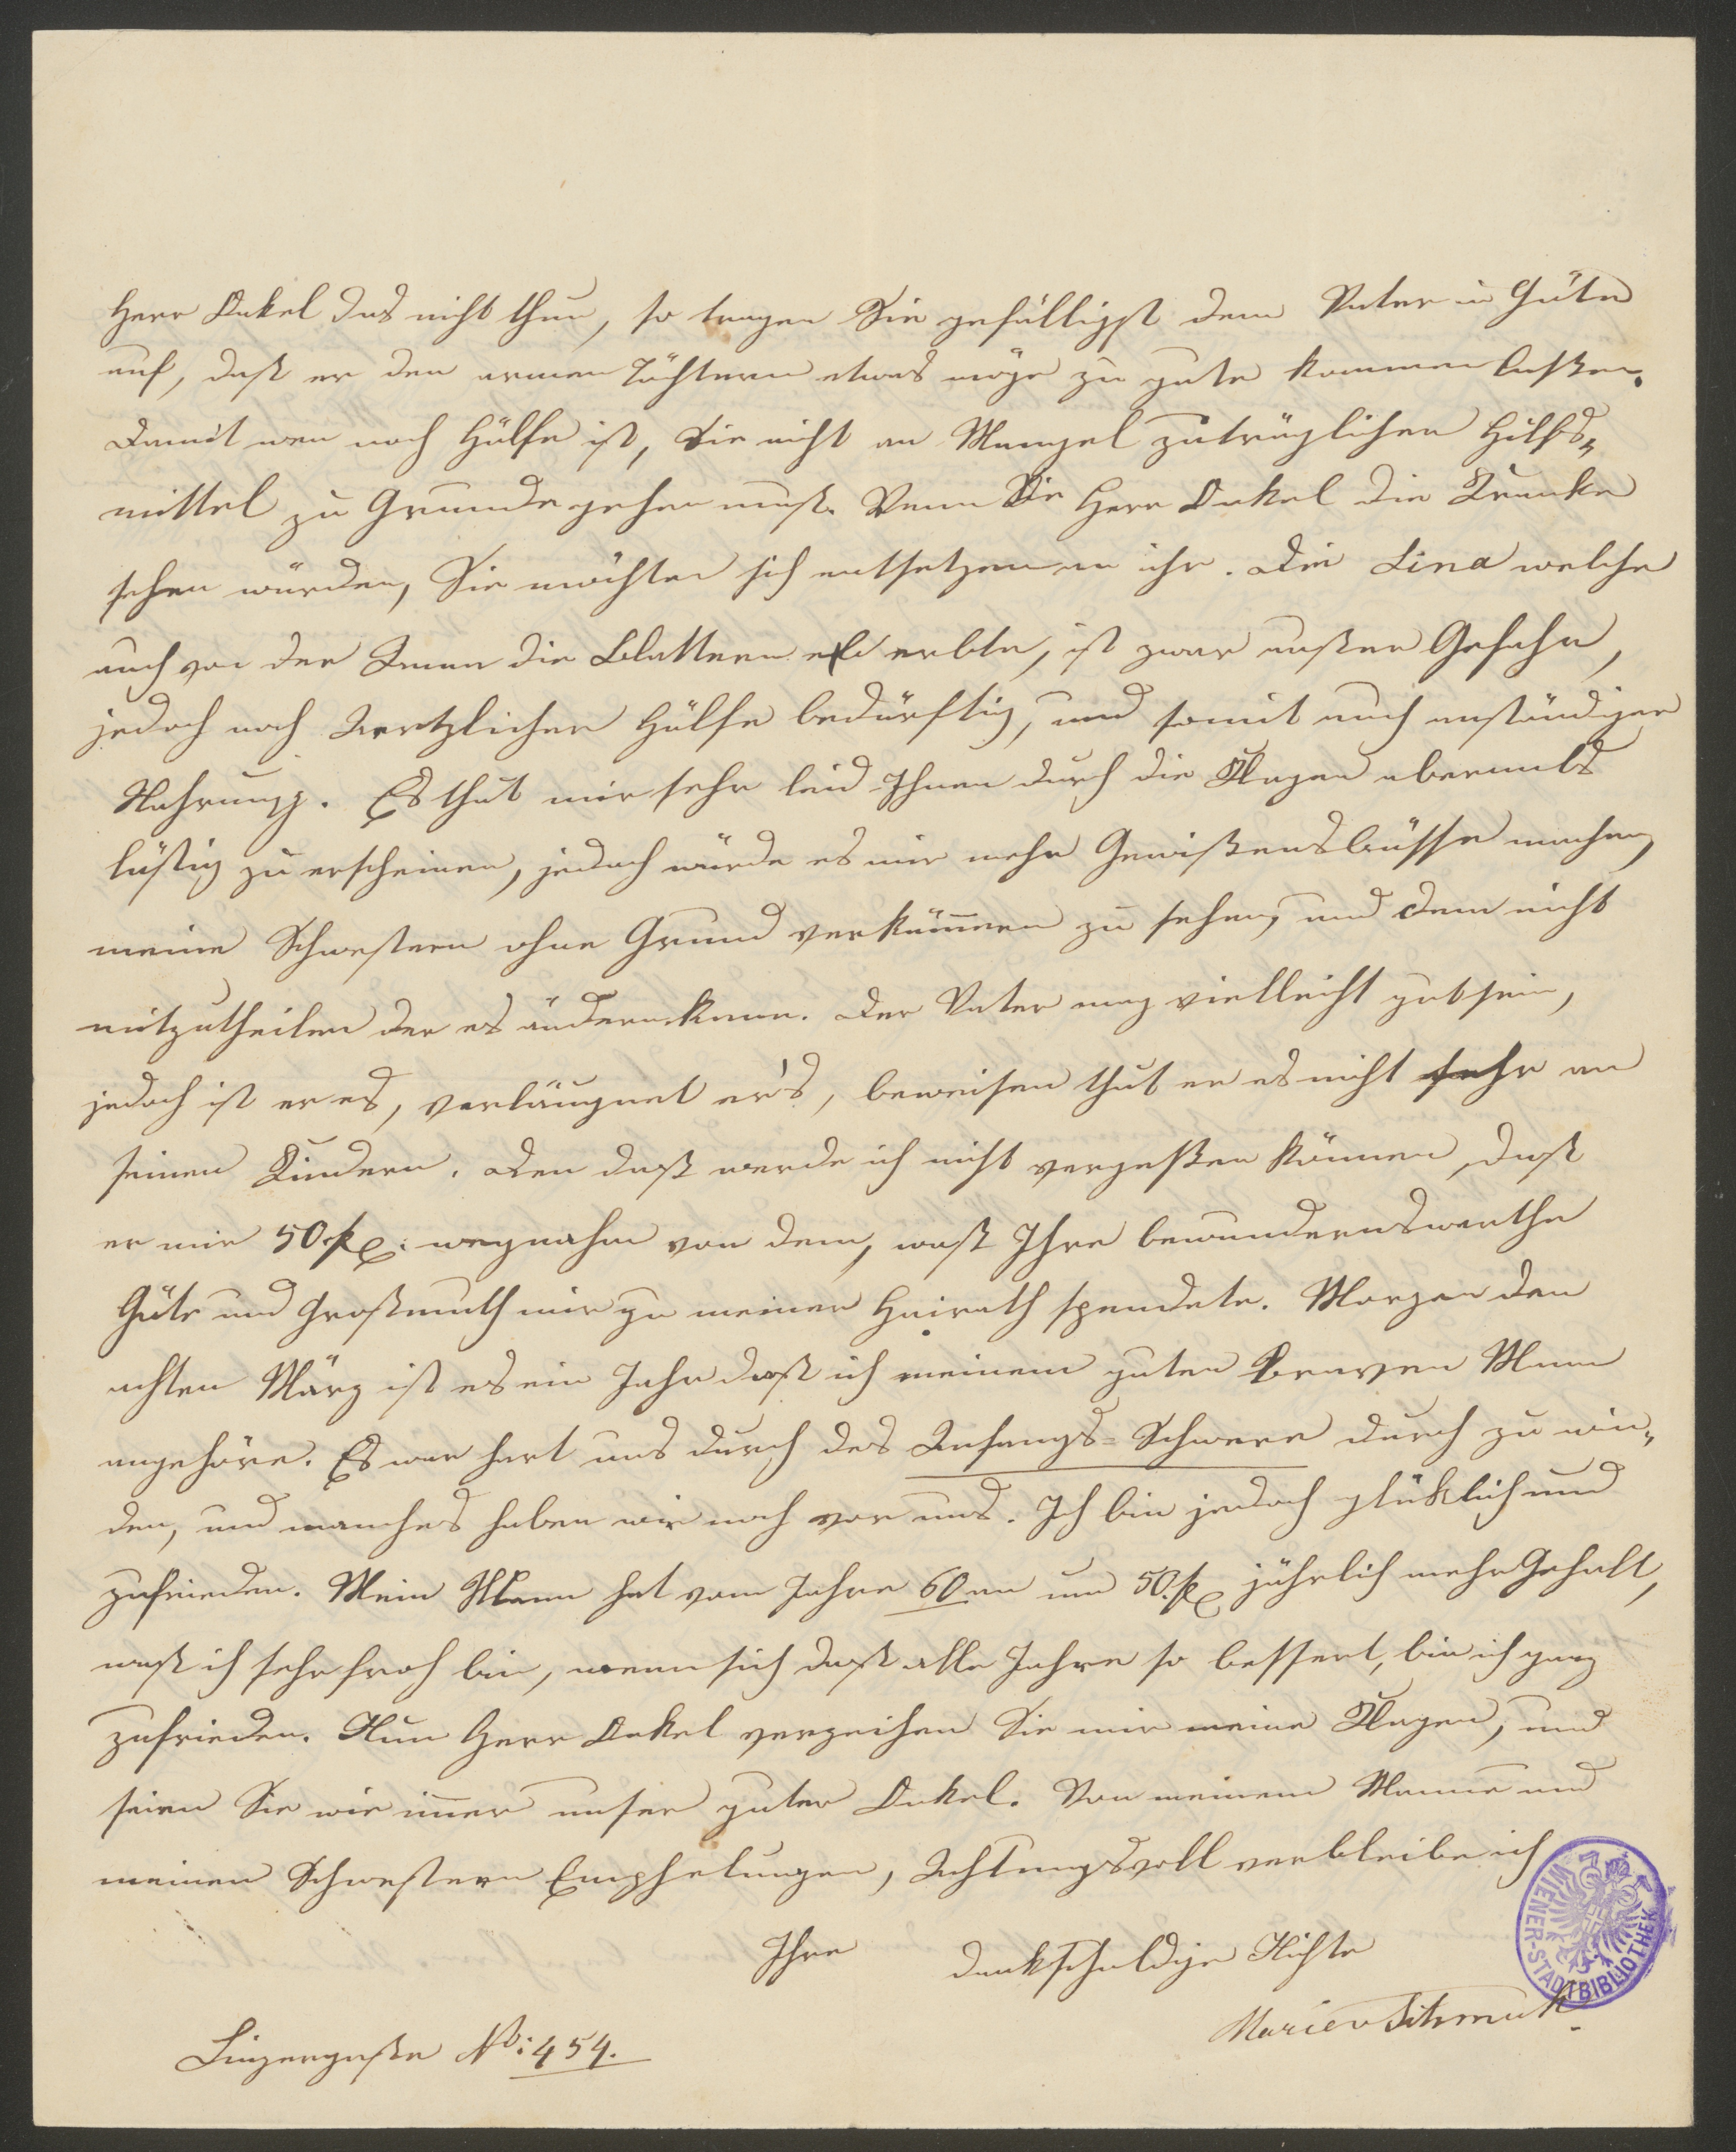 Herr Onkel das nicht thun, so tragen Sie gefälligst dem Vater in Güte
auf, daß er den armen Töchtern etwas möge zu gute kommen laßen.
Damit wen noch Hülfe ist, Sie nicht an Mangel zuträglicher Hilfs„
mittel zu Grunde gehen muß. Wenn Sie Herr Onkel die Kranke
sehen würden, Sie möchten sich entsetzen an ihr. Die Lina welche
auch von der Anna die Blattern erbte, ist zwar außer Gefahr,
jedoch noch Aertzlicher Hülfe bedürftig, und somit auch anständiger
Nahrung. Es thut mir sehr leid Ihnen durch die Klagen abermals
lästig zu erscheinen, jedoch würde es mir mehr Gewißensbisse machen,
meine Schwestern ohne Grund verkümern zu sehen, und dem nicht
mitzutheilen der es ändern kann. Der Vater mag vielleicht gut sein,
jedoch ist er es, verläugnet er's, beweisen thut er es nicht sehr an
seinen Kindern. Den daß werde ich nicht vergeßen können, daß
er mir 50 fl: wegnahm von dem, waß Ihre bewundernswerthe
Güte und Großmuth mir zu meiner Heirath spendete. Morgen den
achten März ist es ein Jahr daß ich meinem guten braven Mann
angehöre. Es war hart uns durch des Anfangs-Schwere durch zu win„
den, und manches haben wir noch vor uns. Ich bin jedoch glüklich und
zufrieden. Mein Mann hat vom Jahre 60 an um 50. fl jährlich mehr Gehalt,
waß ich sehr froh bin, wenn sich daß alle Jahre so bessert, bin ich ganz
zufrieden. Nun Herr Onkel verzeihen Sie mir meine Klagen, und
seien Sie wie imer unser guter Onkel. Von meinem Manne und
meinen Schwestern Emphelungen, Achtungsvoll verbleibe ich
Ihre dankschuldige Nichte
Marie v Schmuk
Linzergaße No: 454.
WIENER-STADTBIBLIOTHEK